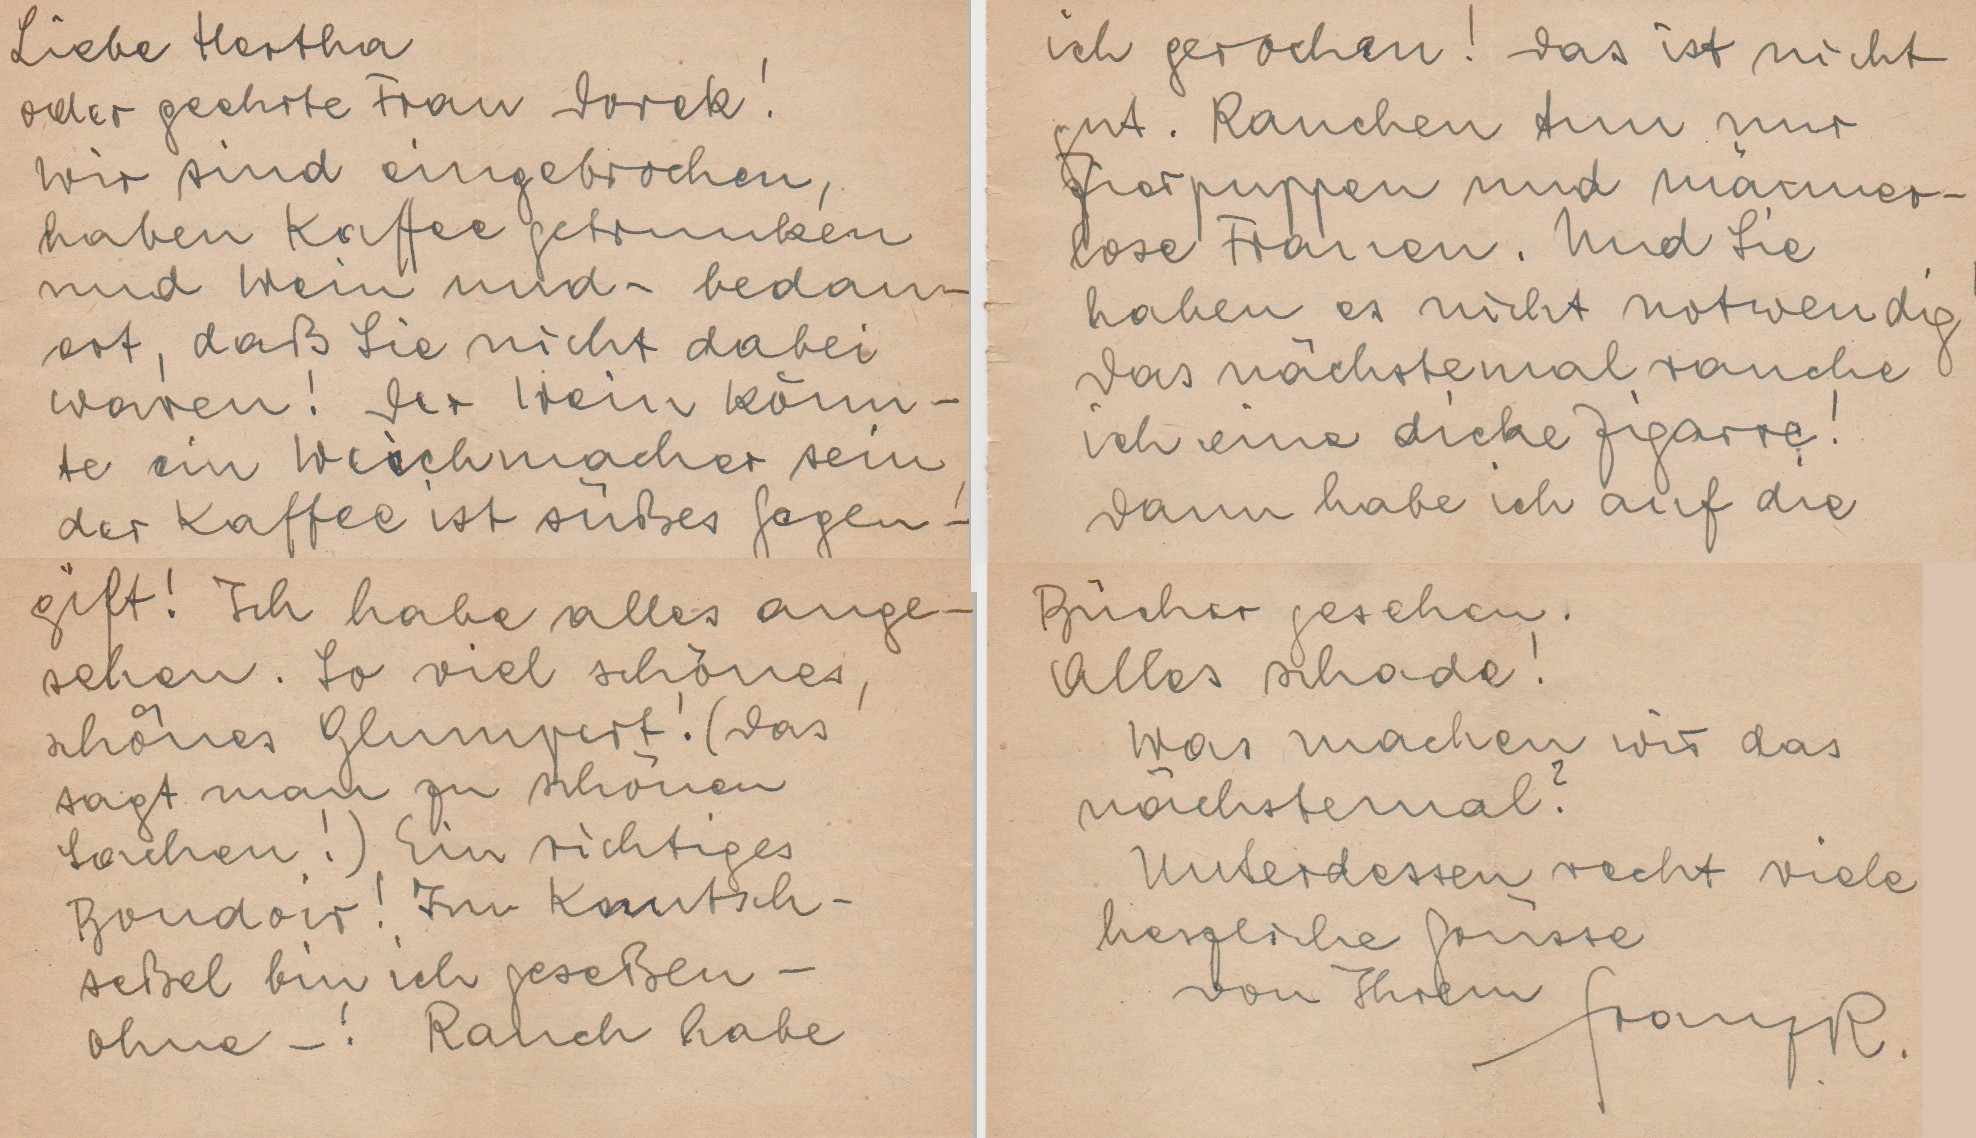 Liebe Hertha
oder geehrte Frau Dorek!
Wir sind eingebrochen,
haben Kaffee getrunken
und Wein und - bedau-
ert, daß Sie nicht dabei
waren! Der Wein könn-
te ein Weichmacher sein,
der Kaffee ist süßes Gegen-
gift! Ich habe alles ange-
sehen. So viel schönes,
schönes Glumpert! (Das
sagt man zu schönen
Sachen!) Ein richtiges
Boudoir! Im Knutsch-
seßel bin ich geseßen -
ohne -! Rauch habe
ich gerochen! Das ist nicht
gut. Rauchen tun nur
Zierpuppen und männer-
lose Frauen. Und Sie
haben es nicht notwendig!
Das nächstemal rauche
ich eine dicke Zigarre!
Dann habe ich auf die
Bücher gesehen.
Alles schade!
Was machen wir das
nächstemal?
Unterdessen recht viele
herzliche Grüsse
von Ihrem
Franz R.